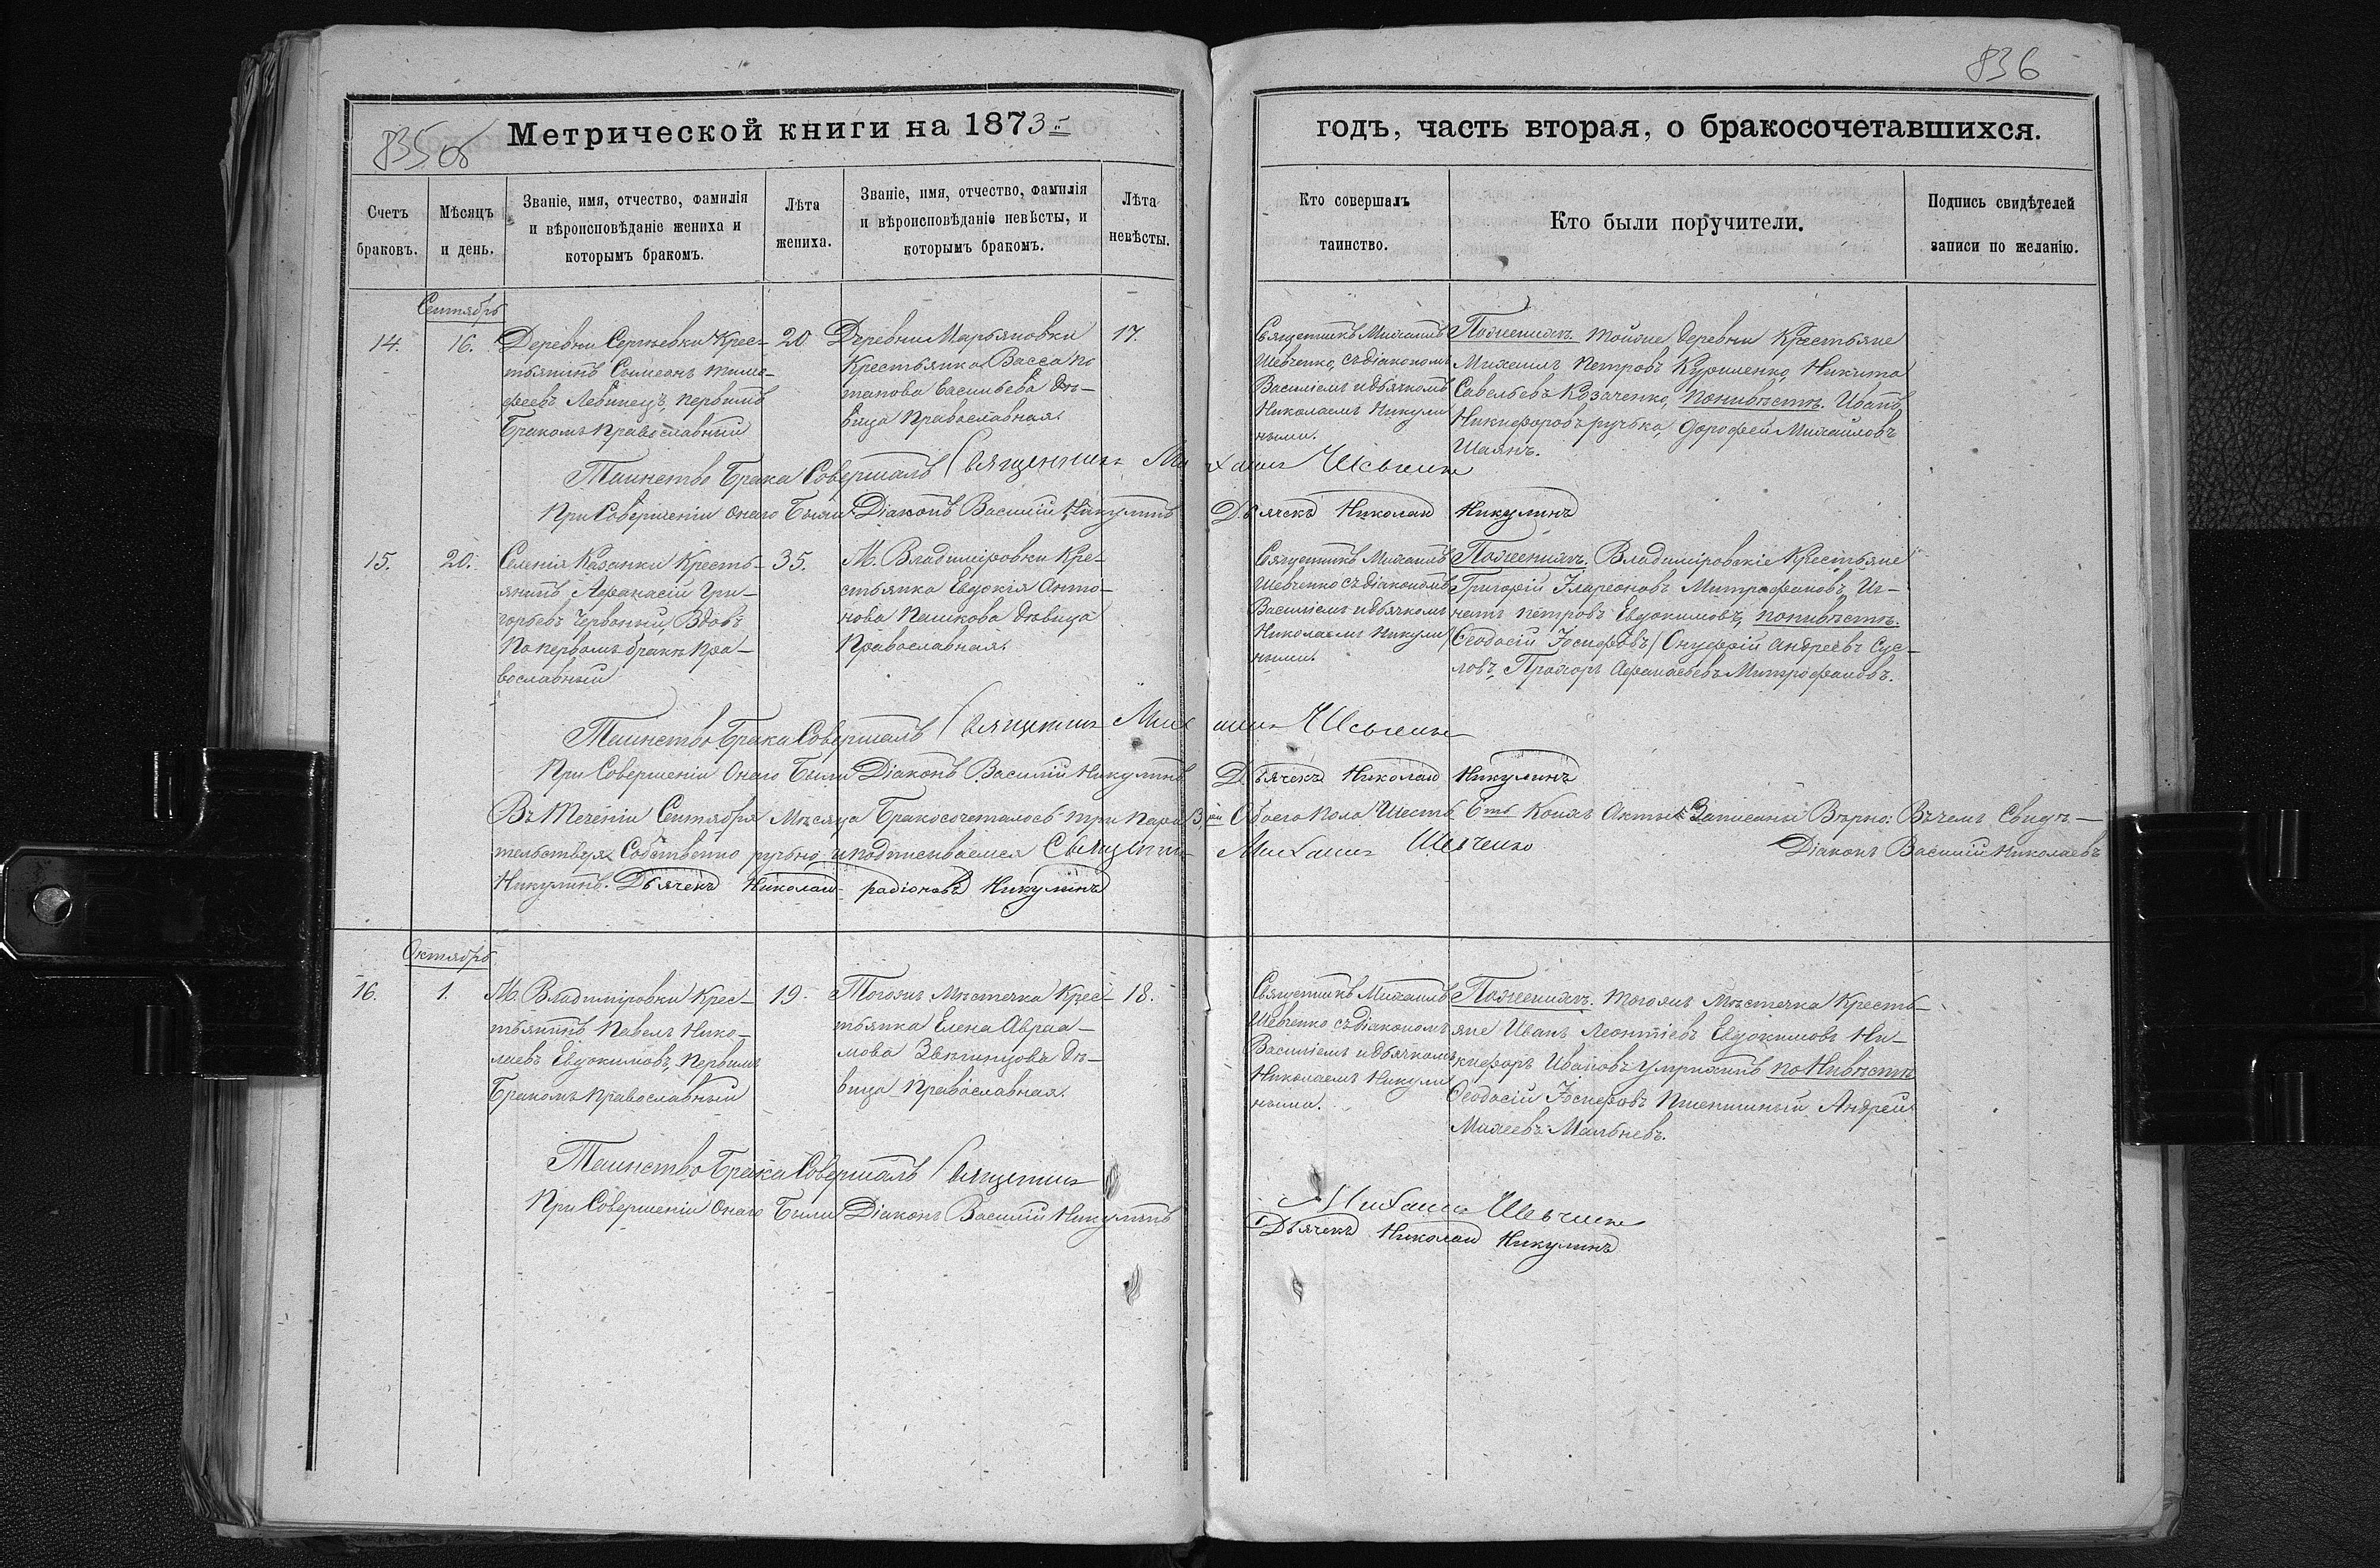 836
835 об
Метрической книги на 1873й
годъ, часть вторая, о бракосочетавшихся.
Счетъ браковъ.
Мѣсяцъ и день.
Званіе, имя, отчество, фамилія и вѣроисповѣданіе жениха и которымъ бракомъ.
Лѣта жениха.
Званіе, имя, отчество, фамилія и вѣроисповѣданіе невѣсты, и которымъ бракомъ.
Лѣта невѣсты.
Кто совершалъ таинство.
Кто были поручители.
Подпись свидѣтелей записи по желанію.
Сентябрь
14.
16.
Деревни Сергѣевки Крес-
тьянинъ Сѵмеонъ Тимо-
феевъ Левинецъ, первымъ
Бракомъ православный
20
Деревни Марьяновки
Крестьянка Васса По
тапова Васильева Дѣ-
вица Православная.
17.
Священникъ Михаилъ
Шевченко, съ діакономъ
Василіемъ и дьячкомъ
Николаемъ Никули
ными.
По женихѣ. тойже деревни Крестьяне
Михаилъ Петровъ Куриленко, Никита
Савельевъ Козаченко, по нивѣстѣ. Иванъ
Никифоровъ ручька, Дорофей Михайловъ
Шаянъ.
Таинство Брака Совершалъ Священникъ Михаилъ Шевченко
При Совершеніи онаго Были Діаконъ Василій Никулинъ Дьячекъ Николай Никулинъ
15.
20.
Селенія Казанки Кресть-
янинъ Афанасій Гри-
горьевъ Червоный, Вдовъ
По первомъ бракѣ Пра-
вославный
35.
М. Владиміровки Кре-
стьянка Евдокія Анто-
нова Пашкова Дѣвица
Православная.
Священникъ Михаилъ
Шевченко съ діакономъ
Василіемъ и дьячкомъ
Николаемъ Никули
ными.
По женихѣ. Владиміровскіе Крестьяне
Григорій Иларіоновъ Митрофановъ, Иг-
натъ Петровъ Евдокимовъ, по нивѣстѣ.
Ѳеодосій Іосифовъ, Онуфрій Андреевъ Сус-
ловъ, Прохоръ Афанасьевъ Митрофановъ.
Таинство Брака Совершалъ Священникъ Михаилъ Шевченко
При Совершеніи Онаго Были Діаконъ Василій Никулинъ Дьячекъ Николай Никулинъ
Въ Теченіи Сентября Мѣсяца Бракосочеталось три пары 3, Обоего Пола Шесть 6ть Коихъ Акты Записаны Вѣрно: Въ чемъ Свидѣ-
тельствуя Собственно ручьно и подписываемся Священникъ Михаилъ Шевченко Діаконъ Василій Николаевъ
Никулинъ. Дьячекъ Николай радіоновъ Никулинъ
Октябрь
16.
1.
М. Владиміровки Крес-
тьянинъ Павелъ Нико-
лаевъ Евдокимовъ, Первымъ
Бракомъ православный
19.
Тогожъ Мѣстечка Крес-
тьянка Елена Авраа-
мова Звягинцова Дѣ-
вица Православная.
18.
Священникъ Михаилъ
Шевченко съ діакономъ
Василіемъ и дьячкомъ
Николаемъ Никули
ными.
По женихѣ. тогожъ Мѣстечка Кресть-
яне Иванъ Леонтіевъ Евдокимовъ Ни-
кифоръ Ивановъ Умрихинъ по Нивѣстѣ
Ѳеодосій Іосифовъ Пшеничный Андрей
Михеевъ Мальневъ.
Таинство Брака Совершалъ Священникъ Михаилъ Шевченко
При Совершеніи Онаго Были Діаконъ Василій Никулинъ Дьячекъ Николай Никулинъ